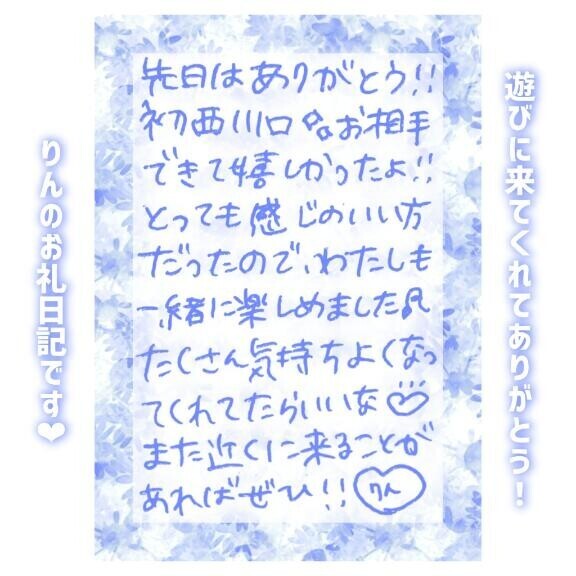 遊びに来てくれてありがとう！
先日はありがとう!!
初西川口お相手
できて嬉しかったよ!!
とっても感じのいい方
だったので、わたしも
一緒に楽しめました♬
たくさん気持ちよくなっ
てくれてたらいいな♡
また近くに来ることが
あればぜひ!!
りん
りんのお礼日記です❤